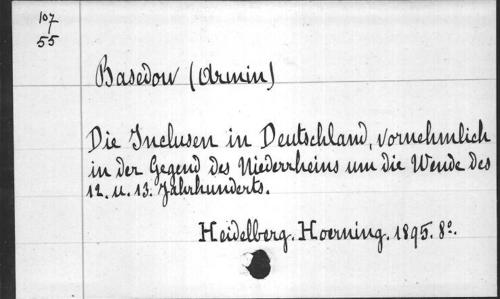 107
55
Basedow (Armin)
Die Inclusen in Deutschland, vornehmlich
in der Gegend des Niederrheins um die Wende des
12. u. 13. Jahrhunderts.
Heidelberg. Hoerning. 1895. 8º.